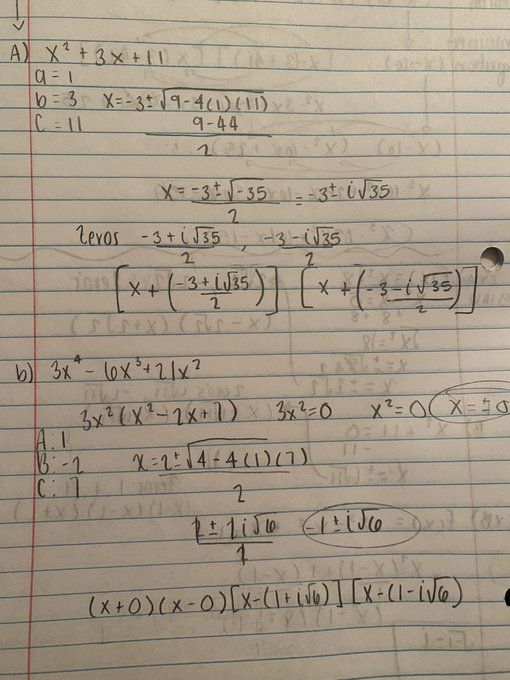 A) x² + 3x + 11
a = 1
b = 3 x = -3 ± √9-4(1)(11)
C = 11 9-44
2
x = -3 ± √-35 = -3 ± i√35
2
Zeros -3 + i√35 , -3 - i√35
2 2
[x + (-3 + i√35)] [x + (-3 - i√35)]
2 2
b) 3x⁴ - 6x³ + 21x²
3x² (x² - 2x + 7) 3x² = 0 x² = 0 x = ± 0
A: 1
B: -2 x = 2 ± √4 - 4(1)(7)
C: 7 2
2 ± 2i√6 -1 ± i√6
(x + 0)(x - 0)[x - (1 + i√6)][x - (1 - i√6)